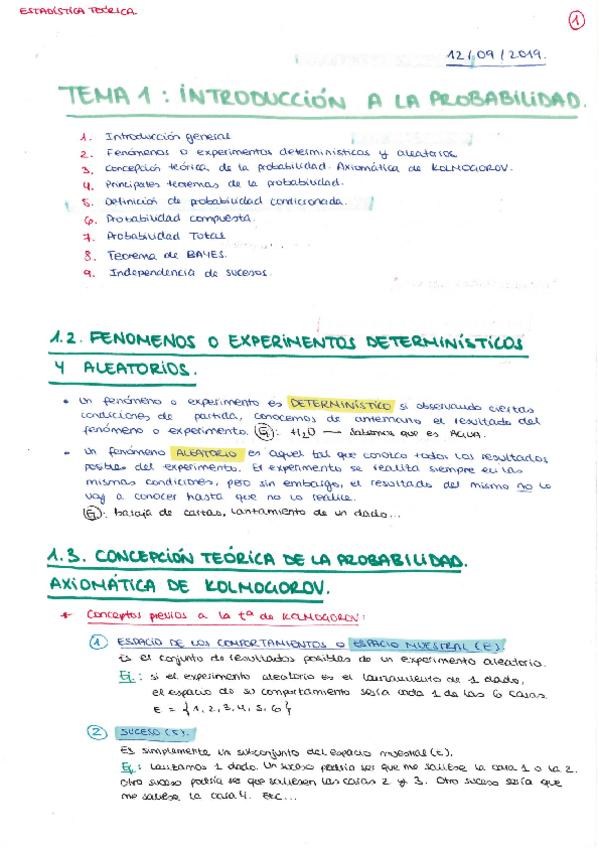 ESTADÍSTICA TEÓRICA.
1
12/09/2019.
TEMA 1: INTRODUCCIÓN A LA PROBABILIDAD.
1. Introducción general
2. Fenómenos o experimentos determinísticos y aleatorios
3. Concepción teórica de la probabilidad. Axiomática de KOLMOGOROV.
4. Principales teoremas de la probabilidad.
5. Definición de probabilidad condicionada.
6. Probabilidad compuesta.
7. Probabilidad Total
8. Teorema de BAYES.
9. Independencia de sucesos.
1.2. FENOMENOS O EXPERIMENTOS DETERMINÍSTICOS
Y ALEATORIOS.
• Un fenómeno o experimento es DETERMINÍSTICO si observando ciertas
condiciones de partida, conocemos de antemano el resultado del
fenómeno o experimento. Ej: H2O — Sabemos que es AGUA.
• Un fenómeno ALEATORIO es aquel tal que conozco todos los resultados
posibles del experimento. El experimento se realiza siempre en las
mismas condiciones, pero sin embargo, el resultado del mismo no lo
voy a conocer hasta que no lo realice.
Ej: baraja de cartas, lanzamiento de un dado...
1.3. CONCEPCIÓN TEÓRICA DE LA PROBABILIDAD.
AXIOMÁTICA DE KOLMOGOROV.
* Conceptos previos a la tª de KOLMOGOROV:
1 ESPACIO DE LOS COMPORTAMIENTOS O ESPACIO MUESTRAL (E).
Es el conjunto de resultados posibles de un experimento aleatorio.
Ej.: si el experimento aleatorio es el lanzamiento de 1 dado,
el espacio de su comportamiento sería cada 1 de las 6 caras.
E = {1, 2, 3, 4, 5, 6}
2 SUCESO (S).
Es simplemente un subconjunto del espacio muestral (E).
Ej.: Lanzamos 1 dado. Un suceso podría ser que me saliese la cara 1 o la 2.
Otro suceso podría ser que saliesen las caras 2 y 3. Otro suceso sería que
me saliese la cara 4. Etc...